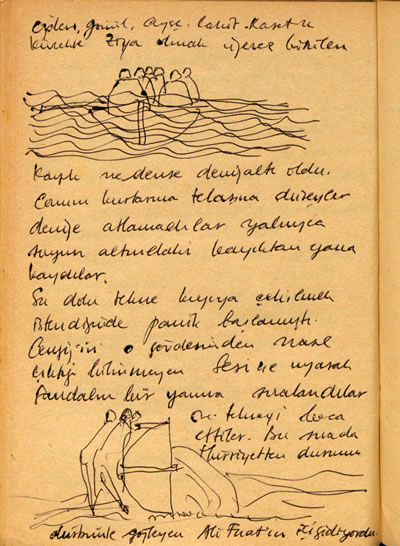 kürekte Ziya olmak üzere bikilen
Kayık nedense denizaltı oldu.
Canını kurtarma telaşına düşenler
denize atlamadılar yalnızca
suyun altındaki kayıktan yana
kaydılar.
Su dolu tekne kıyıya çekilmek
istendiğinde panik başlamıştı.
Cengiz'in o gövdesinden nasıl
çıktığı bilinmeyen sesi ile uyarak
Sandalın bir yanına sıralandılar
ve tekneyi hoca
ettiler. Bu sırada
Hürriyetten durumu
dürbünle gözleyen Ali Fuat'ın içi gidiyordu